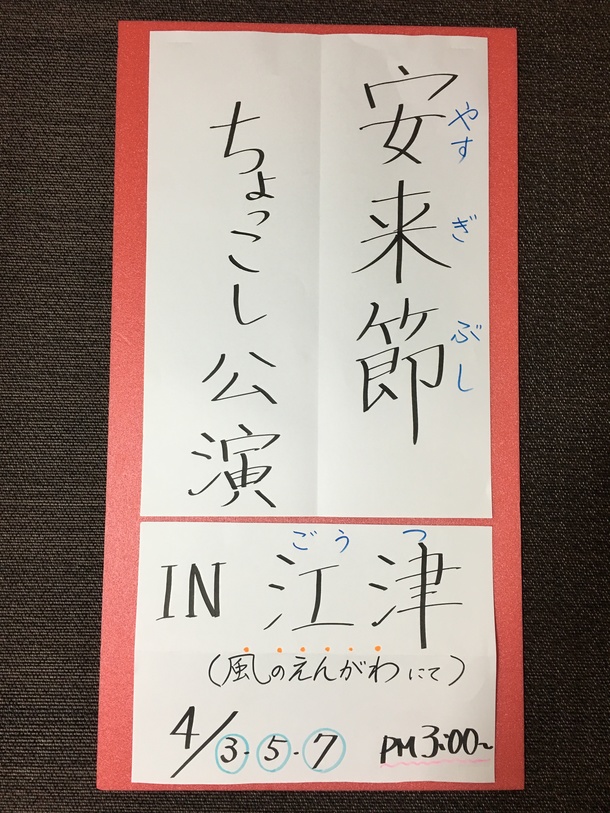 安来節
やすぎぶし
ちょっこし公演
ごうつ
IN 江津
(風のえんがわにて)
4/3・5・7 PM3:00~